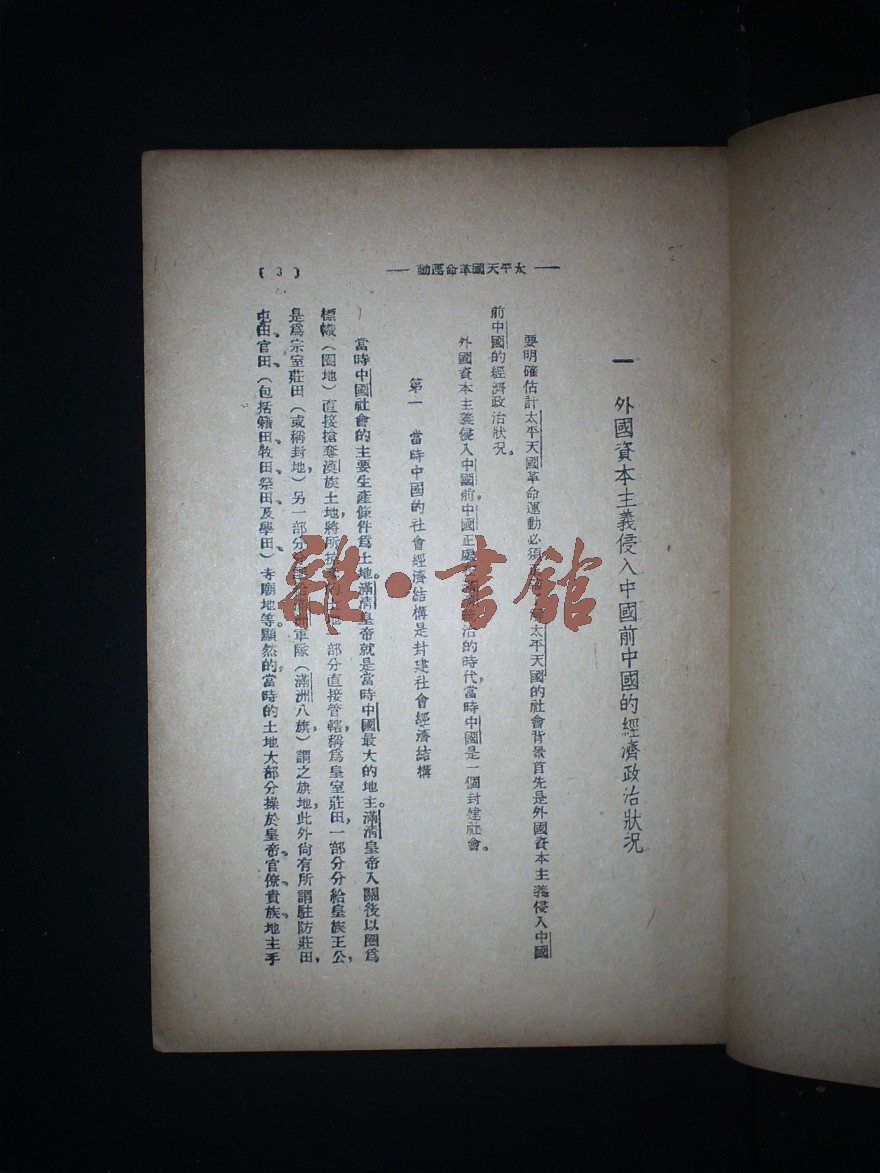 — 太平天國革命運動 —
( 3 )
一 外國資本主義侵入中國前中國的經濟政治狀況
要明確估計太平天國革命運動必須太平天國的社會背景首先是外國資本主義侵入中國
前中國的經濟政治狀況。
外國資本主義侵入中國前,中國正處治的時代,當時中國是一個封建社會。
第一 當時中國的社會經濟結構是封建社會經濟結構
當時中國社會的主要生產條件爲土地。滿清皇帝就是當時中國最大的地主。滿清皇帝入關後以圈爲
標幟(圈地)直接搶奪漢族土地,將所部分直接管轄,稱爲皇室莊田,一部分分給皇族王公,
是爲宗室莊田(或稱封地)另一部分軍隊(滿洲八旗,)謂之旗地,此外尙有所謂駐防莊田,
屯田、官田、(包括籍田、牧田、祭田及學田、)寺廟地等。顯然的當時的土地大部分操於皇帝、官僚、貴族、地主手
雜·書館